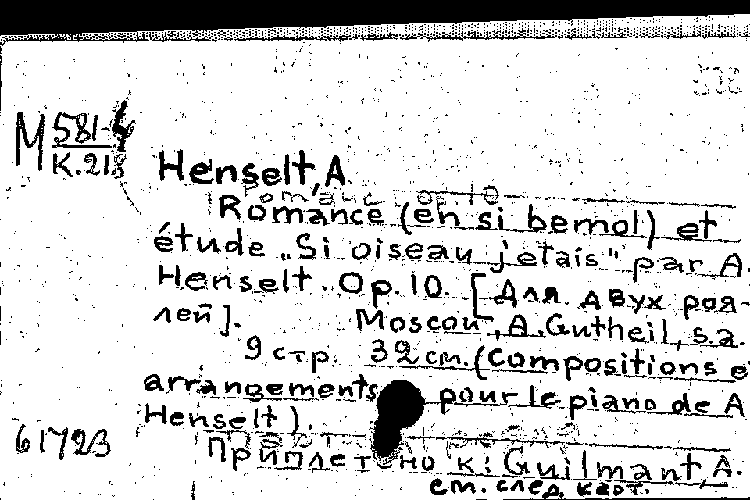 М 581-4
К.218
Henselt, A.
Романс op. 10
Romance (en si bemol) et
étude „Si oiseau j'etais" par A.
Henselt. Op. 10. [Для двух роя-
лей]. Moscou, A. Gutheil, s.a.
9 стр. 32 см. (Compositions e
arrangements pour le piano de A
Henselt).
Приплетено к: Guilmant, A.
61723
см. след. карт.